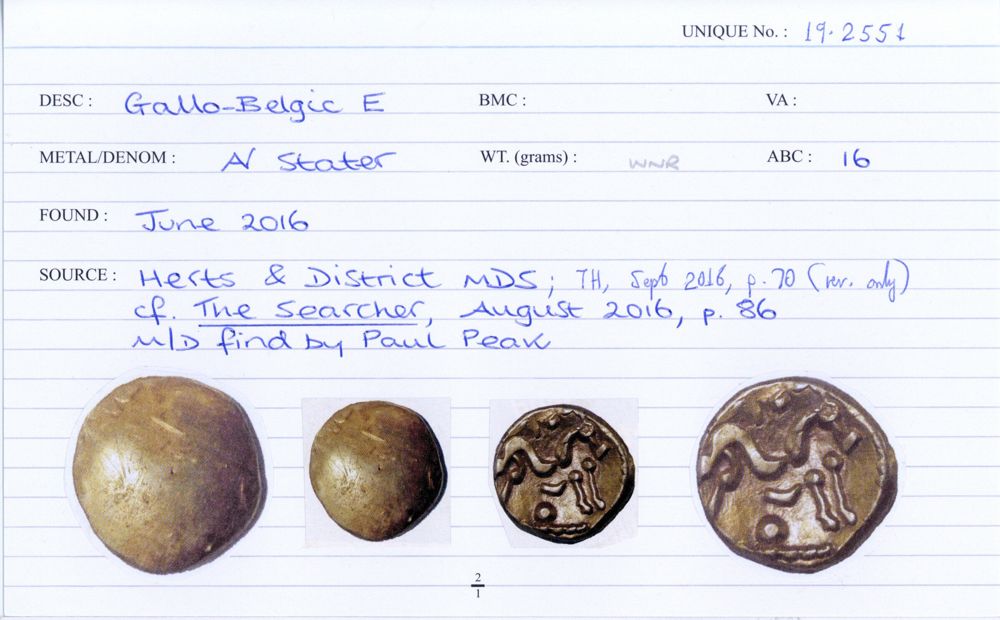 UNIQUE No. : 19.2551
DESC : Gallo-Belgic E BMC : VA :
METAL/DENOM : AV Stater WT. (grams) : WNR ABC : 16
FOUND : June 2016
SOURCE : Herts & District MDS; TH, Sept 2016, p.70 (rev. only)
cf. The Searcher, August 2016, p. 86
M/D find by Paul Peak
2
1